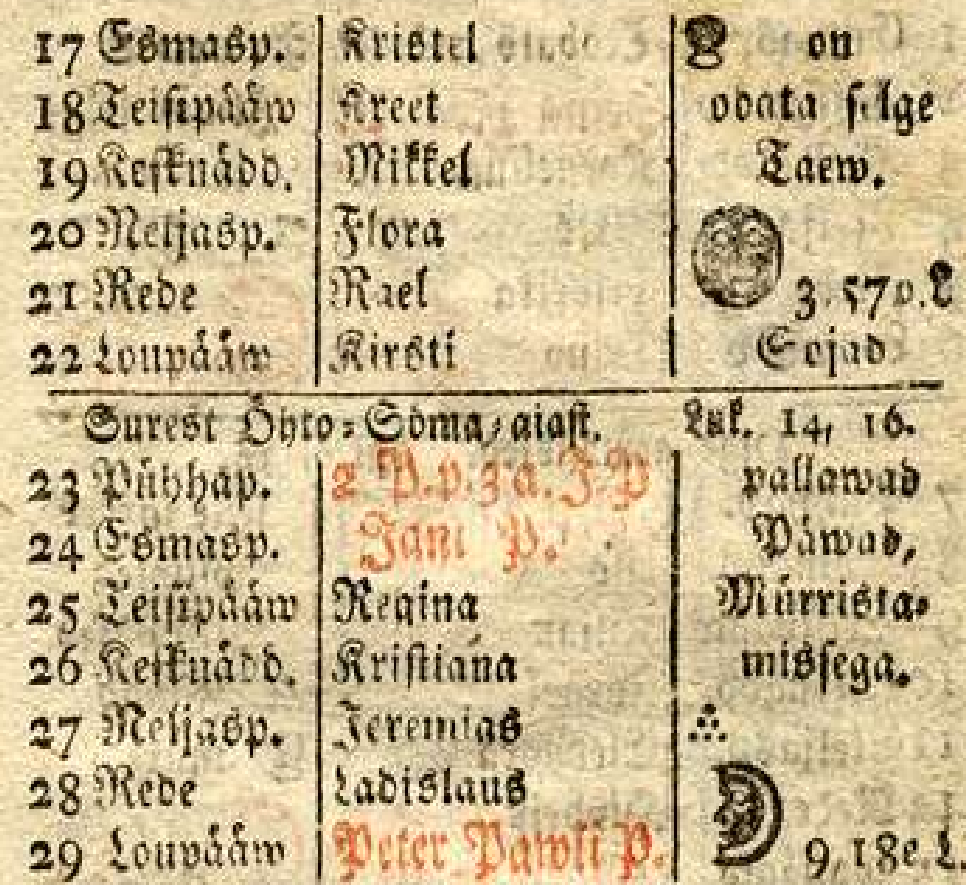 17 Esmasp. Kristel on
18 Teisipääw Kreet oodata selge
19 Keſknädd. Mikkel Taew.
20 Neljasp. Flora
21 Rede Rael 3.57 p. L
22 Loupääw Kirsti Sojad
Surest Öhto-Söma-aiast. Luk. 14, 16.
23 Pühhap. 2 P. p. 3 a. J. P pallawad
24 Esmasp. Jani P. Päwad,
25 Teisipääw Regina Mürrista-
26 Keſknädd. Kriſtiana misſega.
27 Neljasp. Jeremias
28 Rede Ladislaus
29 Loupääw Peter Pawli P. 9, 18 e. L.